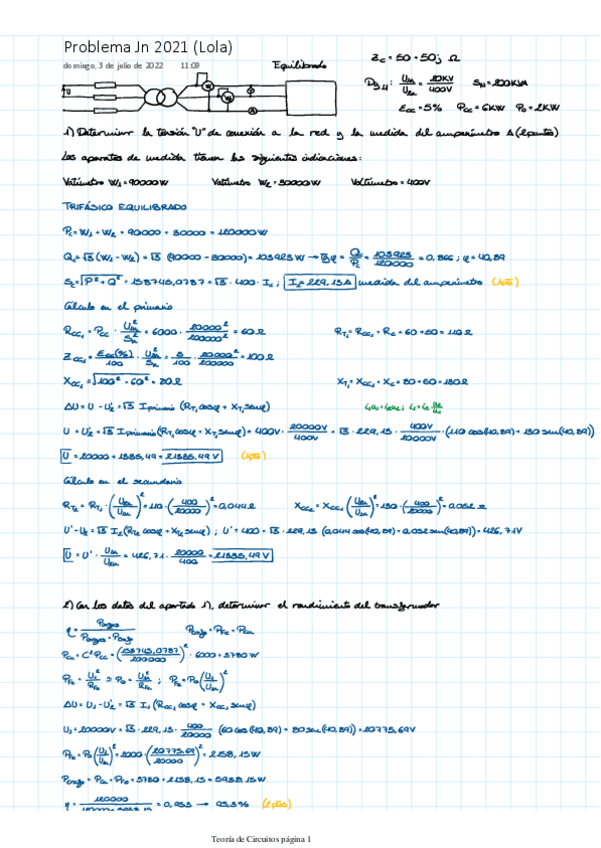 Problema Jn 2021 (Lola)
domingo, 3 de julio de 2022 11:09
Equilibrado
Zc = 50 + 50j Ω
Dy11: U1n/U2n = 20KV/400V Sn = 200KVA
Ecc = 5% Pcc = 6KW P0 = 2KW
U
1) Determinar la tensión "U" de conexión a la red y la medida del amperímetro A (2 puntos)
Los aparatos de medida tienen las siguientes indicaciones:
Vatímetro W1 = 90000W Vatímetro W2 = 30000W Voltímetro = 400V
TRIFÁSICO EQUILIBRADO
Pc = W1 + W2 = 90000 + 30000 = 120000W
Qc = √3 (W1 - W2) = √3 (90000 - 30000) = 103923W → tgφ = Qc/Pc = 103923/120000 = 0,866 ; φ = 40,89
Sc = √P² + Q² = 158745,0787 = √3 · 400 · I2 ; I2 = 229,13A medida del amperímetro (1pto)
Cálculo en el primario
Rcc1 = Pcc · U1n²/Sn² = 6000 · 20000²/200000² = 60Ω RT1 = Rcc1 + Rc = 60 + 50 = 110Ω
Zcc1 = Ecc(%)/100 · U1n²/Sn = 5/100 · 20000²/200000 = 100Ω
Xcc1 = √100² - 60² = 80Ω XT1 = Xcc1 + Xc = 80 + 50 = 130Ω
ΔU = U - U2' = √3 Iprimario (RT1 cosφ + XT1 senφ)
U = U2' + √3 Iprimario (RT1 cosφ + XT1 senφ) = 400V · 20000V/400V + √3 · 229,13 · 400V/20000V · (110 cos(40,89) + 130 sen(40,89))
U = 20000 + 1335,49 = 21335,49V (1pto)
Cálculo en el secundario
RT2 = RT1 · (U2n/U1n)² = 110 · (400/20000)² = 0,044Ω Xcc2 = Xcc1 (U2n/U1n)² = 130 · (400/20000)² = 0,052Ω
U' - U2 = √3 I2 (RT2 cosφ + XT2 senφ) ; U' = 400 + √3 · 229,13 (0,044 cos(40,89) + 0,052 sen(40,89)) = 426,71V
U = U' · U1n/U2n = 426,71 · 20000/400 = 21335,49V
2) Con los datos del apartado 1), determinar el rendimiento del transformador
Pcu = C²Pcc = (158745,0787/200000)² · 6000 = 3780W
ΔU = U1 - U2' = √3 I1 (Rcc1 cosφ + Xcc1 senφ)
U1 = 20000V + √3 · 229,13 · 400/20000 (60 cos(40,89) + 80 sen(40,89)) = 20775,69V
PFe = P0 (U1/U1n)² = 2000 · (20775,69/20000)² = 2158,15W
= Pcu + PFe = 3780 + 2158,15 = 5938,15W
= 0,953 → 95,3%
Teoría de Circuitos página 1